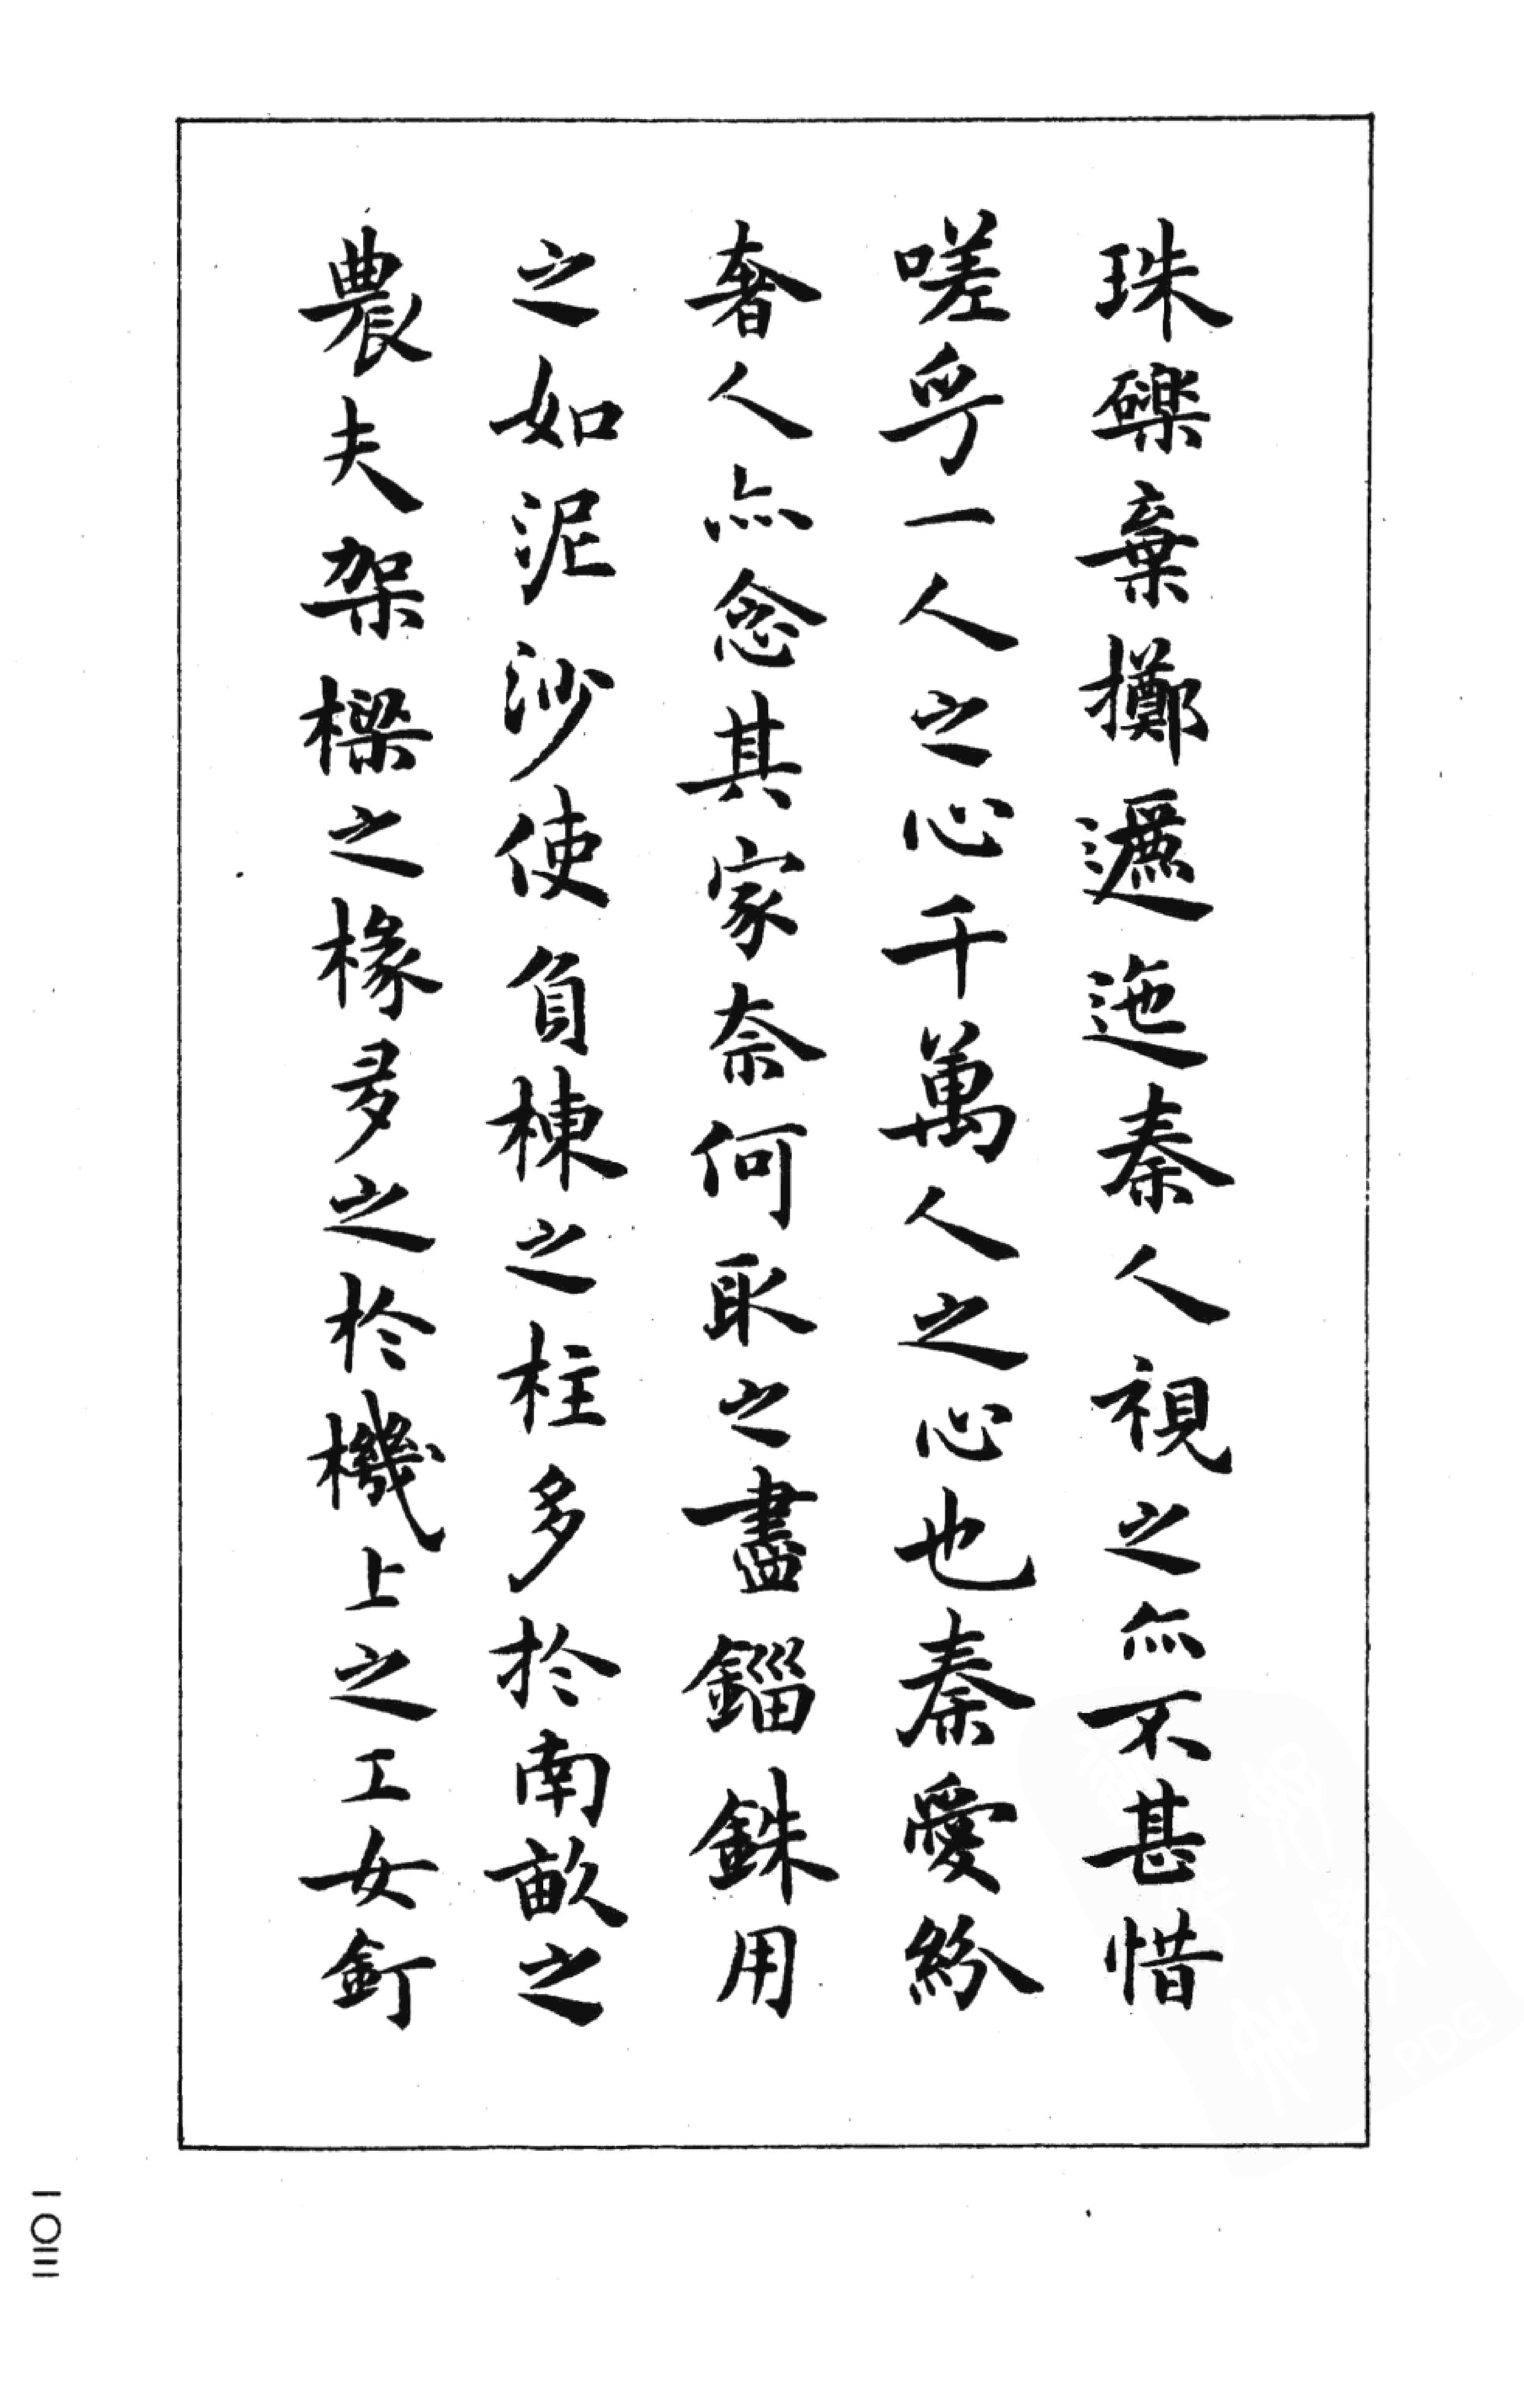 珠礫棄擲邐迤秦人視之亦不甚惜
嗟乎一人之心千萬人之心也秦愛紛
奢人亦念其家奈何取之盡錙銖用
之如泥沙使負棟之柱多於南畝之
農夫架樑之椽多之於機上之工女釘
一〇三
PDG